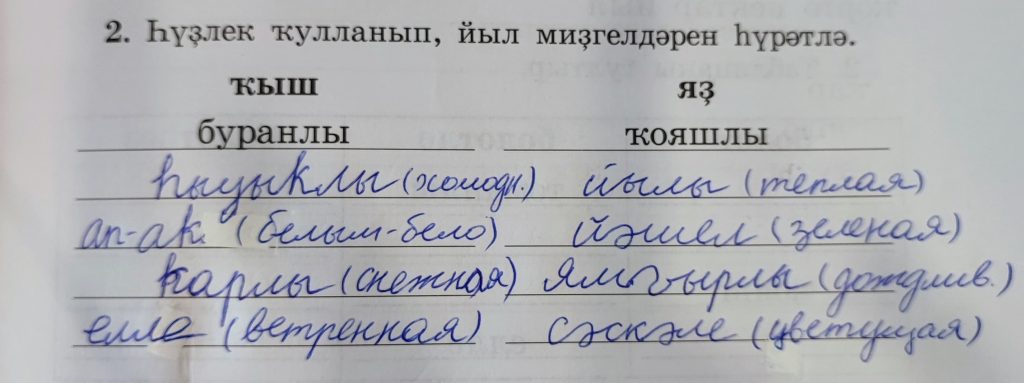 2. Һүҙлек ҡулланып, йыл миҙгелдәрен һүрәтлә.
ҡыш яҙ
буранлы ҡояшлы
һыуыҡлы (холодн.) йылы (теплая)
ап-аҡ (белым-бело) йәшел (зеленая)
ҡарлы (снежная) ямғырлы (дождлив.)
елле (ветренная) сәскәле (цветущая)